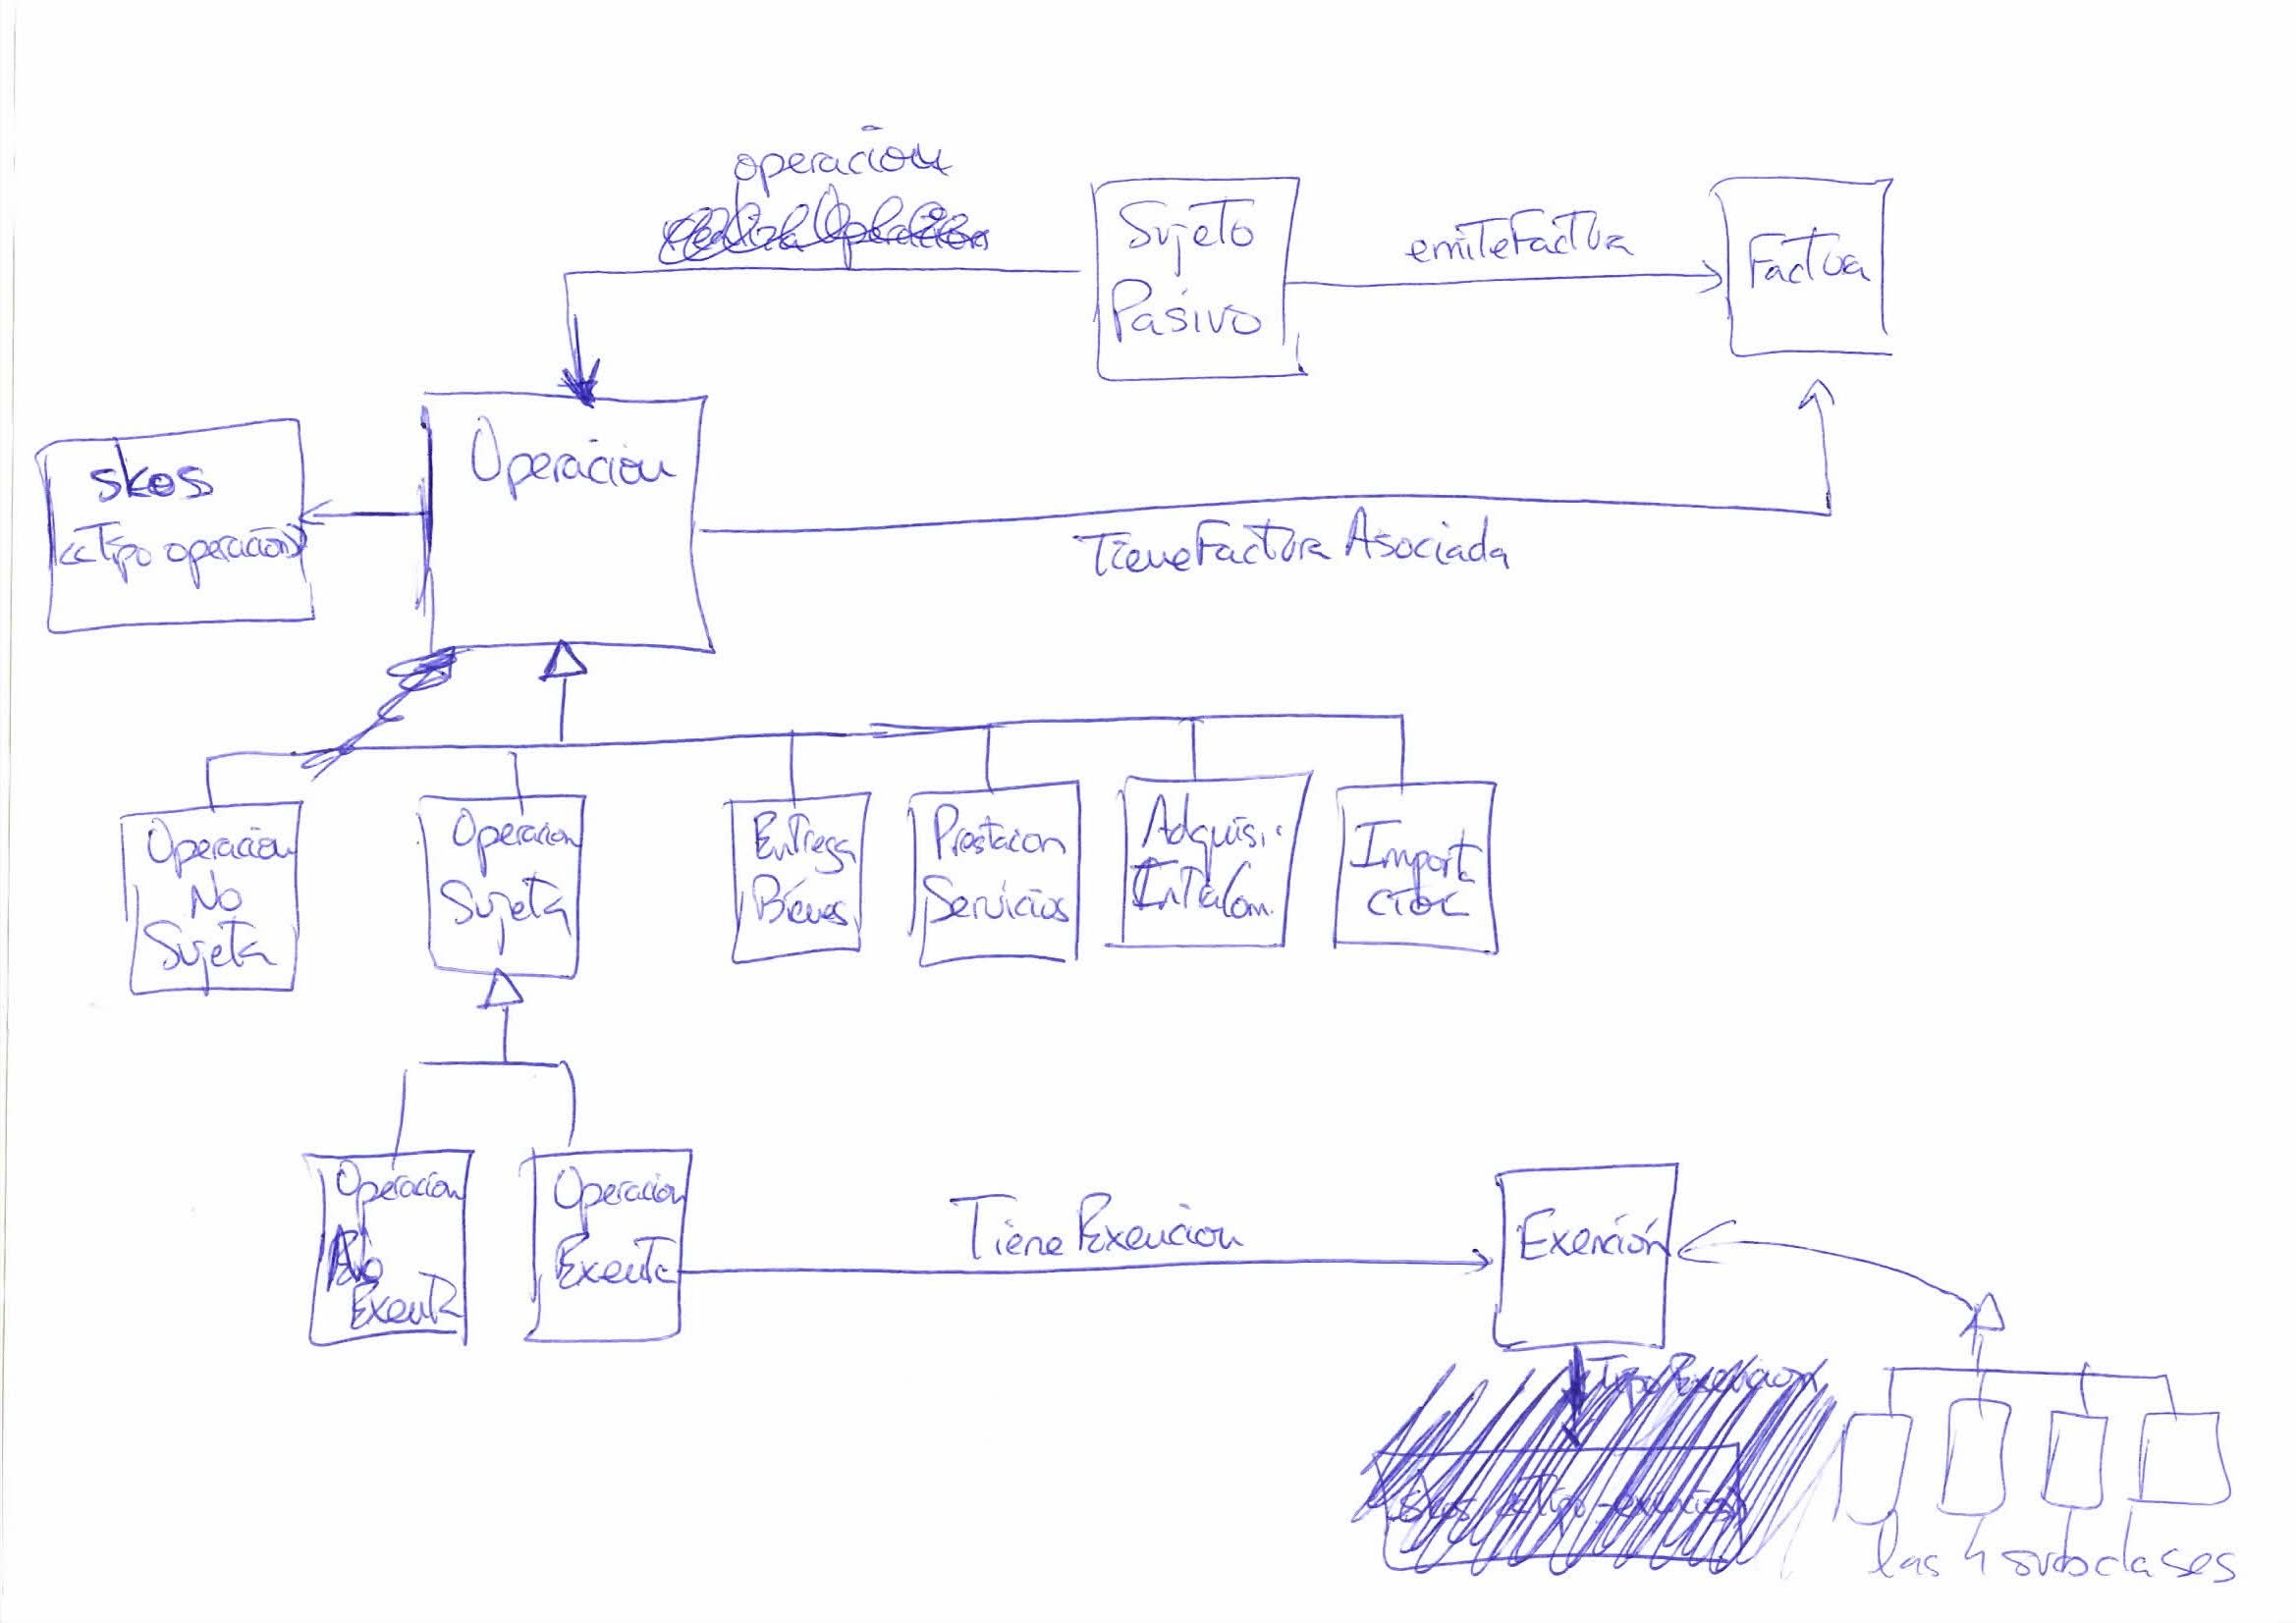 operación
realiza Operación
Sujeto
Pasivo
emiteFactura
Factura
Operación
skos
<<Tipo operación>>
TieneFactura Asociada
Operación
No
Sujeta
Operacion
Sujeta
Entrega
Bienes
Prestacion
Servicios
Adquisi.
IntraCom.
Import
ción
Operacion
No
Exenta
Operacion
Exenta
Tiene Exencion
Exención
Tipo Exencion
skos <<Tipo-exención>>
las 4 subclases